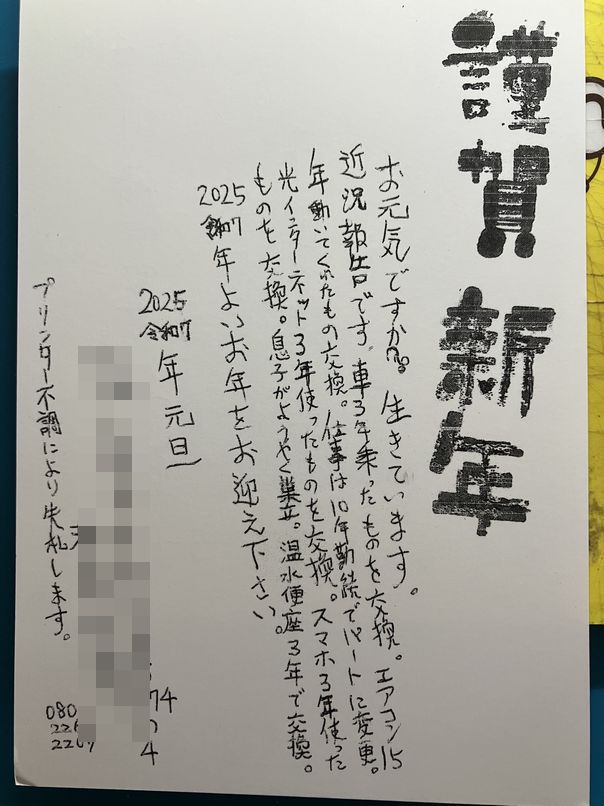 謹賀新年
お元気ですか?。生きています。
近況報告です、車3年乗ったものを交換。エアコン15
年動いてくれたもの交換。仕事は10年勤続でパートに変更。
光インターネット3年使ったものを交換。スマホ3年使った
ものを交換。息子がようやく巣立。温水便座3年で交換。
2025
令和7
年よいお年をお迎え下さい。
2025
令和7
年元旦
74
4
080
プリンター不調により失礼します。